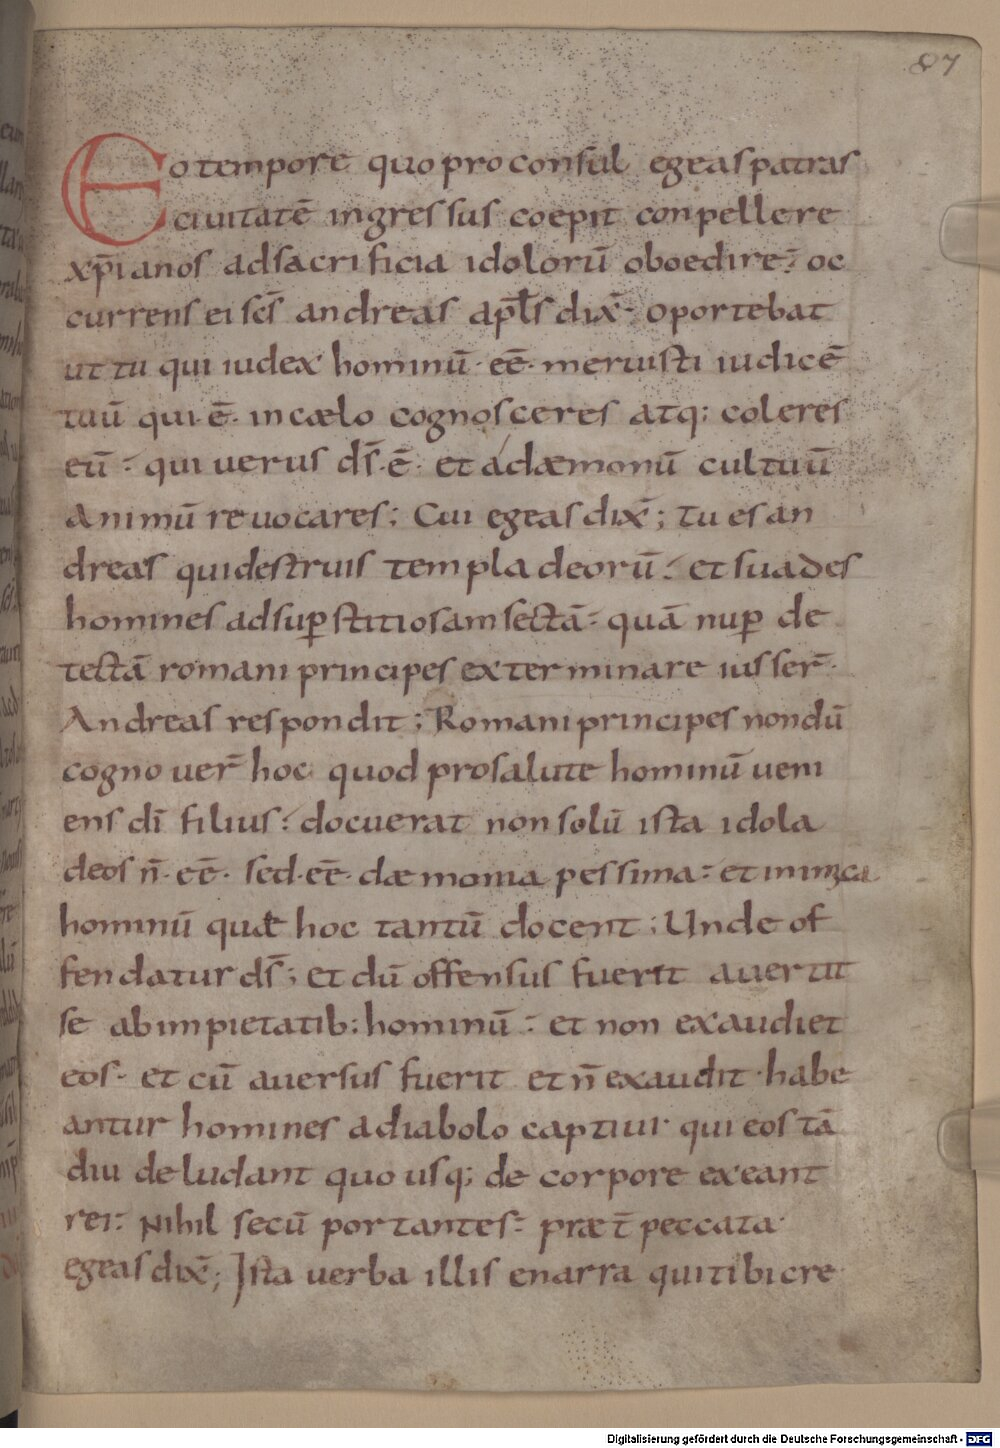 87
Eo tempore quo proconsul egeas patras
ciuitatē ingressus coepit conpellere
xp̄ianos ad sacrificia idolorū oboedire; oc
currens ei sc̄s andreas apl̄s dix̄· oportebat
ut tu qui iudex hominū· eē· meruisti iudicē
tuū qui·ē· in cælo cognosceres atq; coleres
eū· qui uerus d̄s·ē· et a dæmonū cultuū
animū reuocares; Cui egeas dix̄; tu es an
dreas qui destruis templa deorū· et suades
homines ad suꝑstitiosam sectā· quā nuꝑ de
tectā romani principes exterminare iusser̄·
Andreas respondit; Romani principes nondū
cognouer̄ hoc quod pro salute hominū ueni
ens dī filius· docuerat non solū ista idola
deos n̄· eē· sed· eē· dæmonia pessima· et inimica
hominū quæ hoc tantū docent; Unde of
fendatur d̄s; et dū offensus fuerit auertit
se ab impietatib; hominū· et non exaudiet
eos· et cū auersus fuerit et n̄ exaudit· habe
antur homines a diabolo captiui· qui eos tā
diu deludant quo usq; de corpore exeant
rei· Nihil secū portantes· præt̄ peccata·
egeas dix̄; Ista uerba illis enarra qui tibi cre
Digitalisierung gefördert durch die Deutsche Forschungsgemeinschaft - DFG